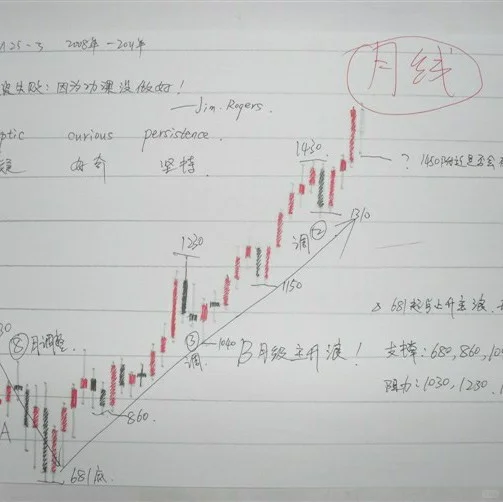 25-3 2008年-2011年
失败:因为功课没做好!
—Jim.Rogers.
月线
ptic curious persistence
疑 好奇 坚持
1430
? 1450附近是否会
1310
调②
1230
1150
△ 681起点上升主浪
⑧月调整
③
调
1040
B月级主升浪!
支撑:680,860,10
阻力:1030,1230,1
860
A
681底